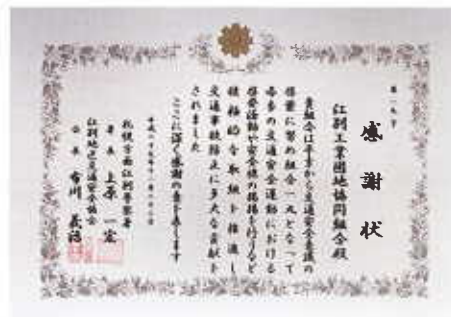 感謝状
江別工業団地協同組合殿
貴組合は平素から交通安全意識の
啓蒙に努め組合一丸となって
各季の交通安全運動における
啓発活動や安全旗の掲揚を行うなど
積極的な取組を推進し
交通事故防止に多大な貢献を
されました
ここに深く感謝の意を表します
札幌方面江別警察署
署長 上原 一宏
江別地区交通安全協会
会長 布川 義治